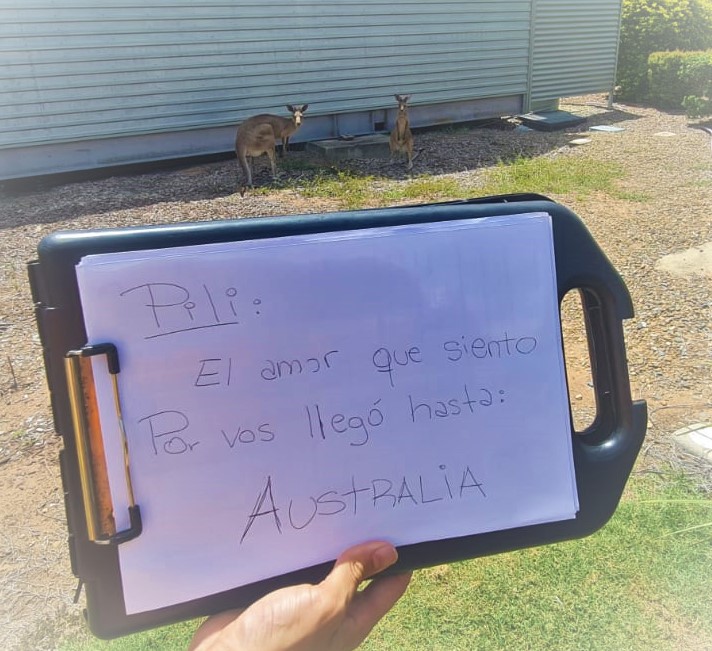 Pili:
El amor que siento
Por vos llegó hasta:
AUSTRALIA